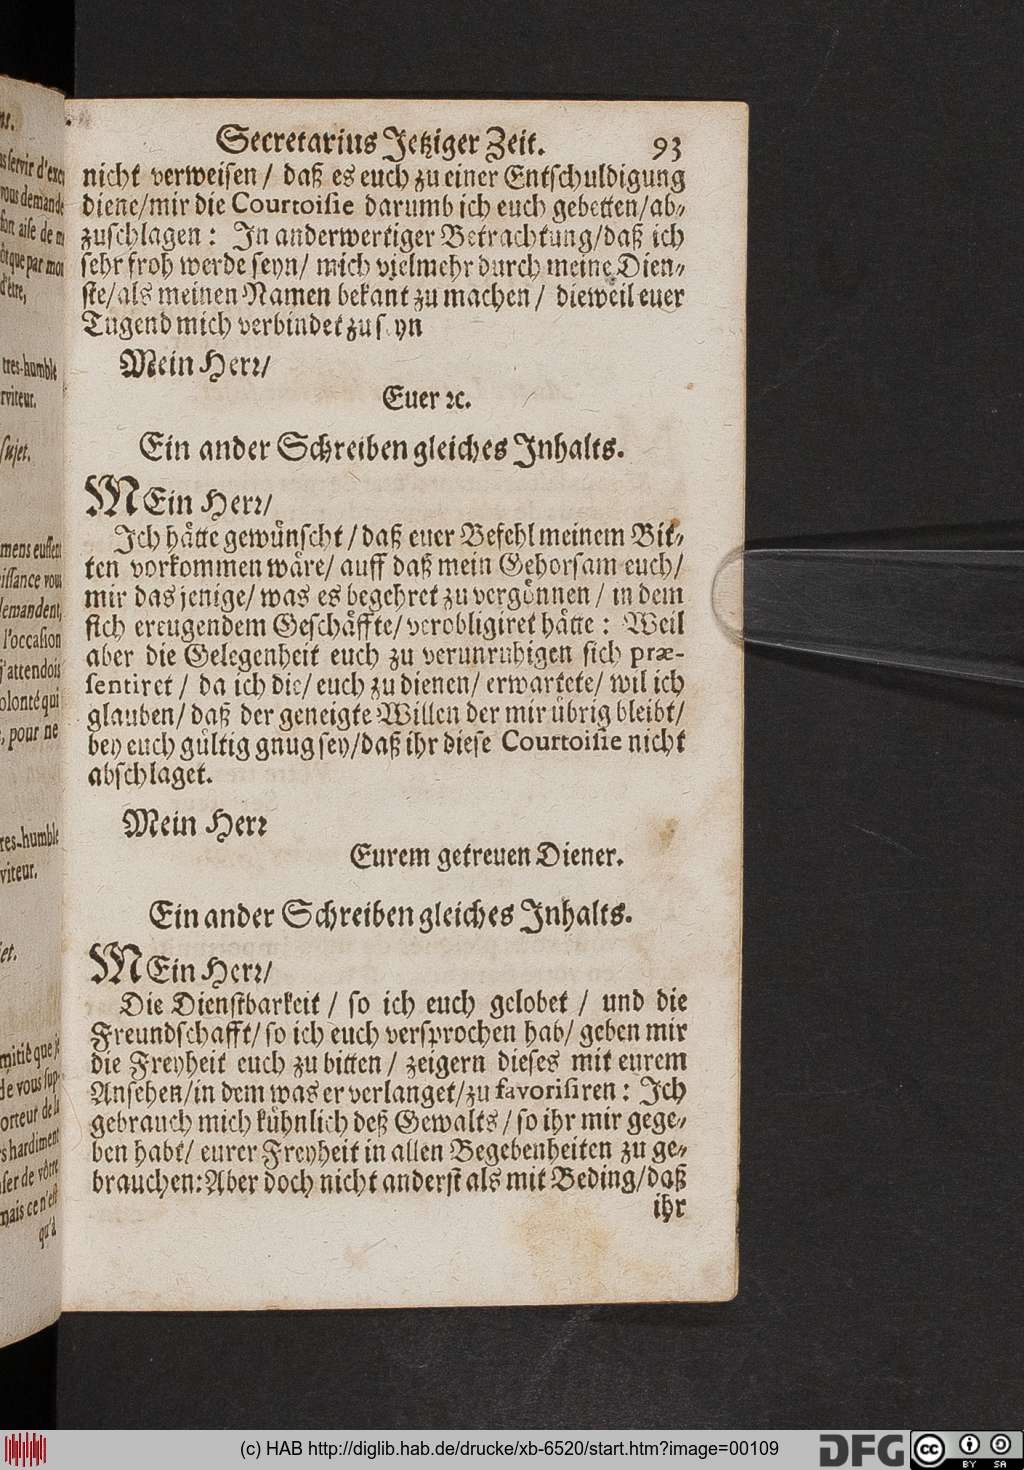 Secretarius Jetziger Zeit. 93
nicht verweisen / daß es euch zu einer Entschuldigung
diene/mir die Courtoisie darumb ich euch gebetten/ab-
zuschlagen: In anderwertiger Betrachtung/daß ich
sehr froh werde seyn/ mich vielmehr durch meine Dien-
ste/als meinen Namen bekant zu machen / dieweil euer
Tugend mich verbindet zu s yn
Mein Herr/
Euer ꝛc.
Ein ander Schreiben gleiches Inhalts.
MEin Herr/
Ich hätte gewünscht / daß euer Befehl meinem Bit-
ten vorkommen wäre/ auff daß mein Gehorsam euch/
mir das jenige/ was es begehret zu vergönnen / in dem
sich ereugendem Geschäffte/ verobligiret hätte : Weil
aber die Gelegenheit euch zu verunruhigen sich præ-
sentiret / da ich die/ euch zu dienen/ erwartete/ wil ich
glauben/ daß der geneigte Willen der mir übrig bleibt/
bey euch gültig gnug sey/daß ihr diese Courtoisie nicht
abschlaget.
Mein Herr
Eurem getreuen Diener.
Ein ander Schreiben gleiches Inhalts.
MEin Herr/
Die Dienstbarkeit / so ich euch gelobet / und die
Freundschafft/ so ich euch versprochen hab/ geben mir
die Freyheit euch zu bitten / zeigern dieses mit eurem
Ansehen/in dem was er verlanget/zu favorisiren: Ich
gebrauch mich kühnlich deß Gewalts / so ihr mir gege-
ben habt/ eurer Freyheit in allen Begebenheiten zu ge-
brauchen: Aber doch nicht anderst als mit Beding/daß
ihr
(c) HAB http://diglib.hab.de/drucke/xb-6520/start.htm?image=00109
DFG
cc
BY SA